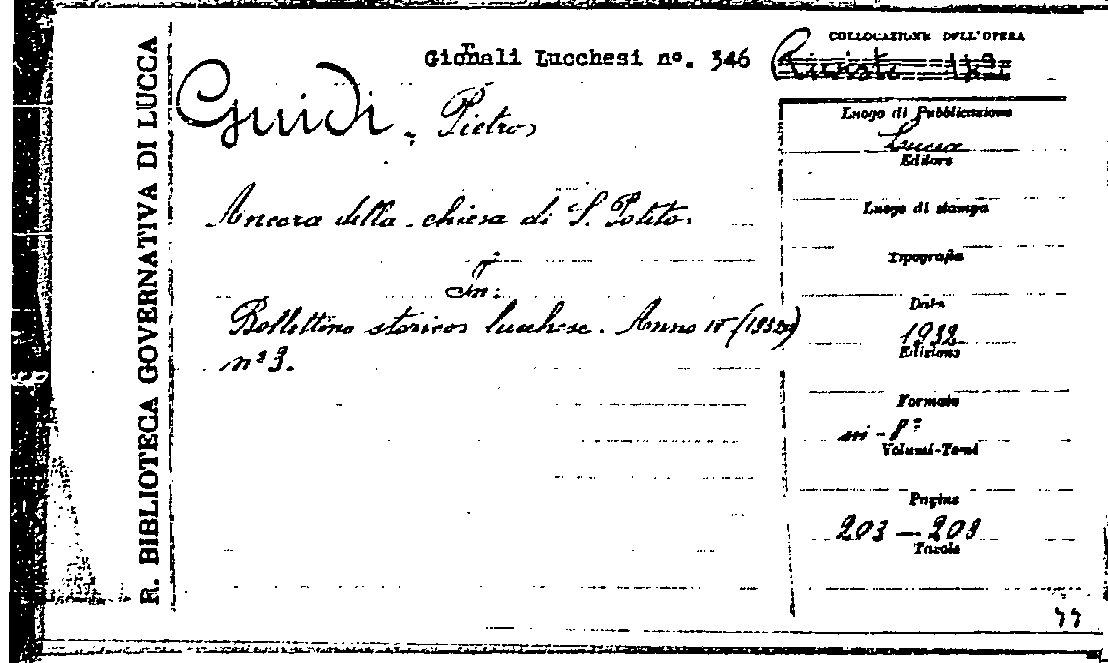 R. BIBLIOTECA GOVERNATIVA DI LUCCA
Giornali Lucchesi n°. 346
COLLOCAZIONE DELL'OPERA
Riviste
Guidi, Pietro
Ancora della chiesa di S. Polito.
In:
Bollettino storico lucchese. Anno IV (1932)
n° 3.
Luogo di Pubblicazione
Lucca
Editore
Luogo di stampa
Tipografia
Data
1932
Edizione
Formato
in-8°
Volumi-Tomi
Pagine
203 — 209
Tavole